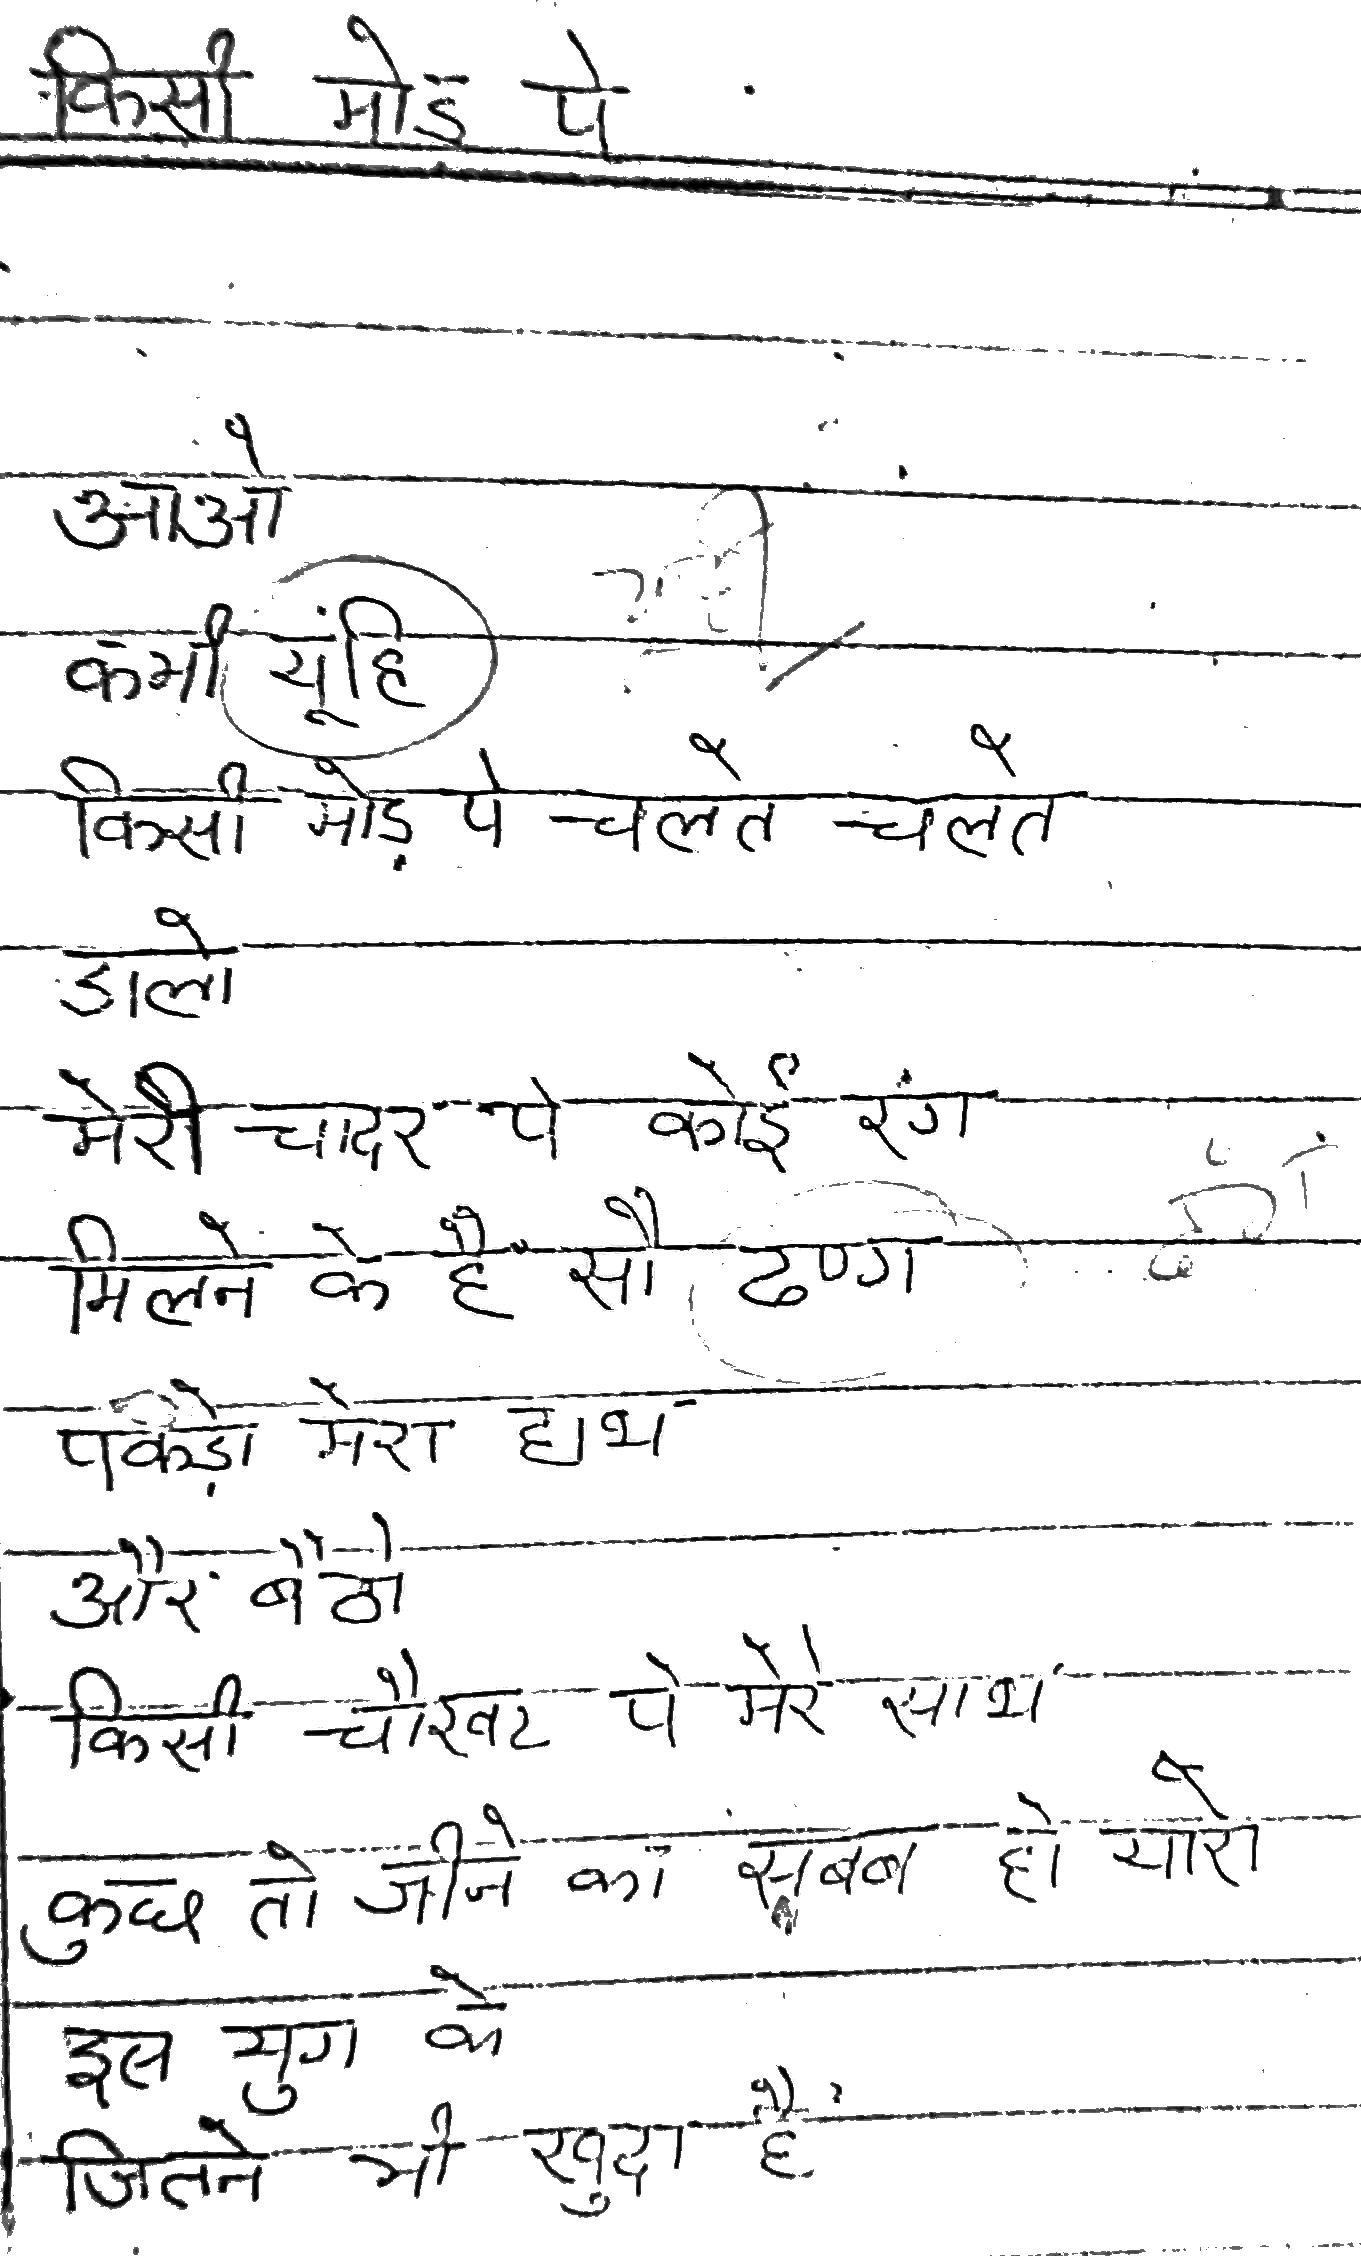 किसी मोड़ पे
आओ
कभी यूंहि
किसी मोड़ पे चलते चलते
डालो
मेरी चादर पे कोई रंग
मिलने के हैं सौ ढण्ग
पकड़ो मेरा हाथ
और बैठो
किसी चौखट पे मेरे साथ
कुछ तो जीने का सबब हो यारो
इस युग के
जितने भी खुदा हैं